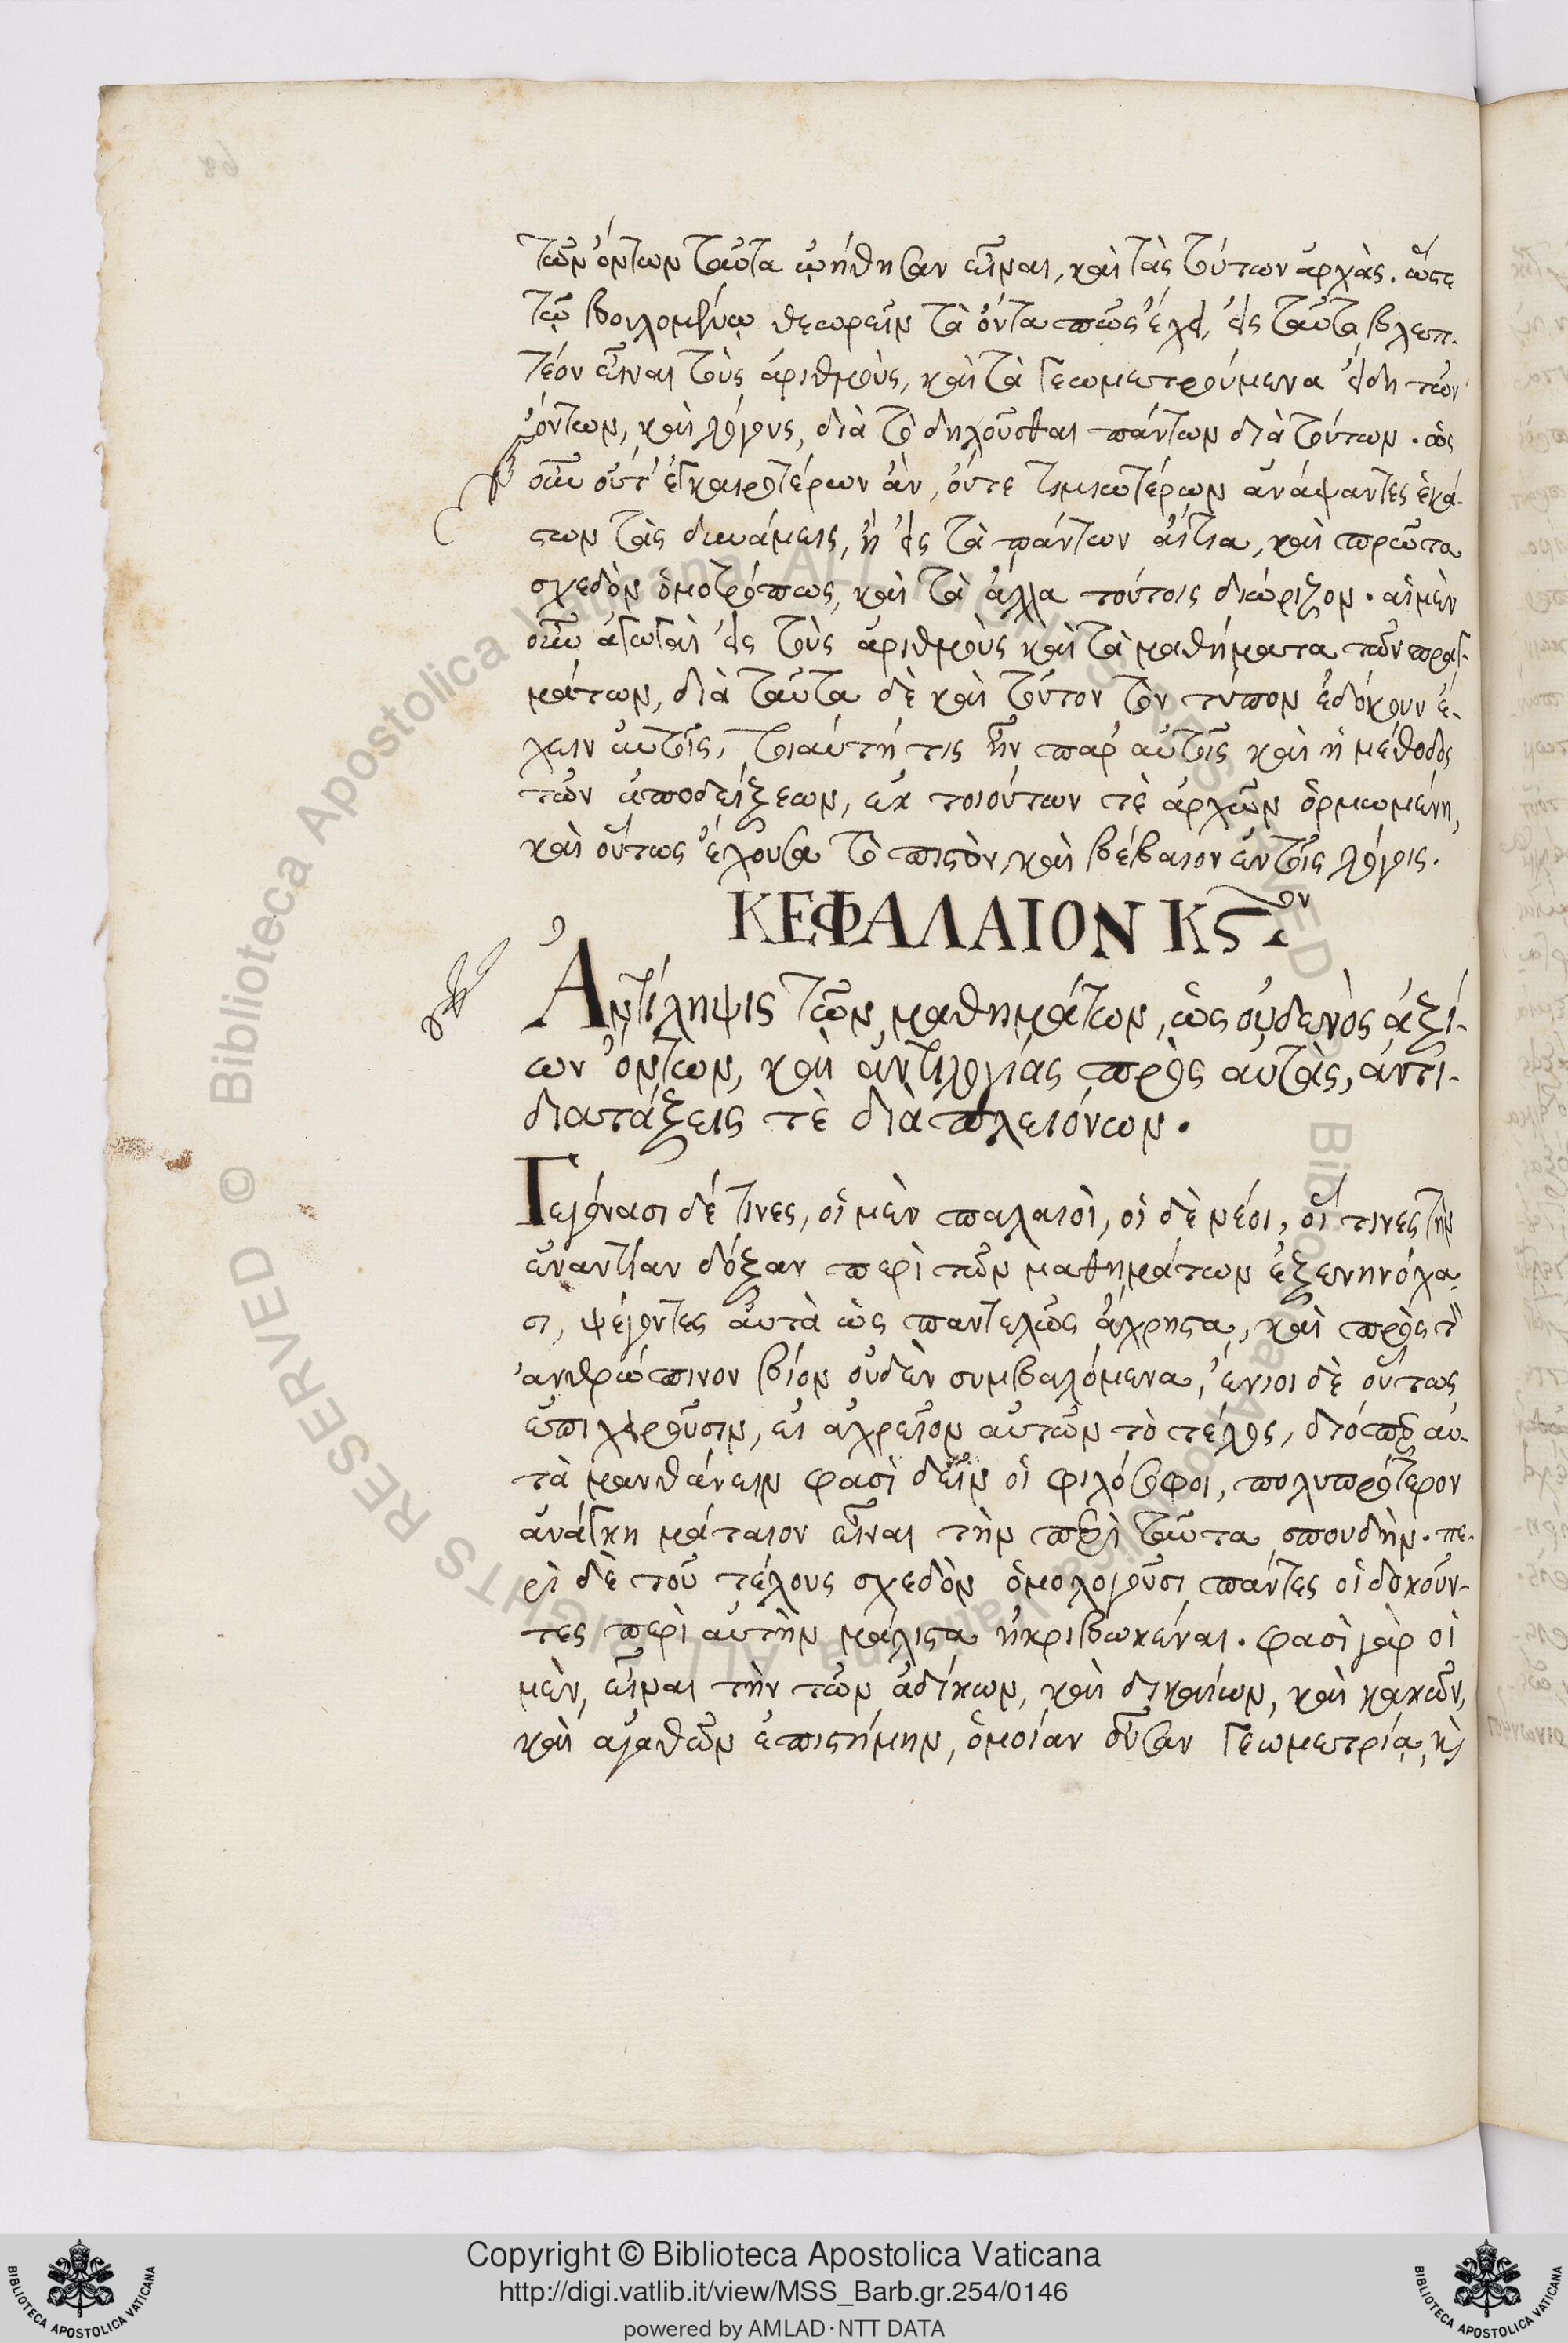 τῶν ὄντων ταῦτα ᾠήθησαν εἶναι, καὶ τὰς τούτων ἀρχὰς. ὥστε
τῷ βουλομένῳ θεωρεῖν τὰ ὄντα πῶς ἔχει, εἰς ταῦτα βλεπ-
τέον εἶναι τοὺς ἀριθμοὺς, καὶ τὰ γεωμετρούμενα εἴδη τῶν
ὄντων, καὶ λόγους, διὰ τὸ δηλοῦσθαι πάντων διὰ τούτων. ὡς
οὖν οὔτ' ἐγκαιροτέρων ἂν, οὔτε τιμιωτέρων ἀνάψαντες ἑκά-
στων τὰς δυνάμεις, ἢ εἰς τὰ πάντων αἴτια, καὶ πρῶτα
σχεδὸν ὁμοτρόπως, καὶ τὰ ἄλλα τούτοις διώριζον. αἱ μὲν
οὖν ἀγωγαὶ εἰς τοὺς ἀριθμοὺς καὶ τὰ μαθήματα τῶν πραγ-
μάτων, διὰ ταῦτα δὲ καὶ τοῦτον τὸν τύπον ἐδόκουν ἔ-
χειν αὐτοῖς, τοιαύτη τις ἦν παρ' αὐτοῖς καὶ ἡ μέθοδος
τῶν ἀποδείξεων, ἐκ τοιούτων τὲ ἀρχῶν ὁρμωμένη,
καὶ οὕτως ἔχουσα τὸ πιστὸν, καὶ βέβαιον ἐν τοῖς λόγοις.
ΚΕΦΑΛΑΙΟΝ Κϛ.ον
Ἀντίληψις τῶν μαθημάτων, ὡς οὐδενὸς ἀξί-
ων ὄντων, καὶ ἀντιλογίας πρὸς αὐτὰς, ἀντι-
διατάξεις τὲ διὰ πλειόνων.
Γεγόνασι δέ τινες, οἱ μὲν παλαιοὶ, οἱ δὲ νέοι, οἵ τινες τὴν
ἐναντίαν δόξαν περὶ τῶν μαθημάτων ἐξενηνόχα
σι, ψέγοντες αὐτὰ ὡς παντελῶς ἄχρηστα, καὶ πρὸς τὸν
ἀνθρώπινον βίον οὐδὲν συμβαλόμενα, ἔνιοι δὲ οὕτως
ἐπιχεροῦσιν, εἰ ἀχρεῖον αὐτῶν τὸ τέλος, διόπερ αὐ-
τὰ μανθάνειν φασὶ δεῖν οἱ φιλόσοφοι, πολυπρότερον
ἀνάγκη μάταιον εἶναι τὴν περὶ ταῦτα σπουδὴν. πε-
ρὶ δὲ τοῦ τέλους σχεδὸν ὁμολογοῦσι πάντες οἱ δοκοῦν-
τες περὶ αὐτὴν μάλιστα ἠκριβωκέναι. φασὶ γὰρ οἱ
μὲν, εἶναι τὴν τῶν ἀδίκων, καὶ δικαίων, καὶ κακῶν,
καὶ ἀγαθῶν ἐπιστήμην, ὁμοίαν οὖσαν γεωμετρίᾳ, καὶ
Copyright © Biblioteca Apostolica Vaticana
http://digi.vatlib.it/view/MSS_Barb.gr.254/0146
powered by AMLAD·NTT DATA